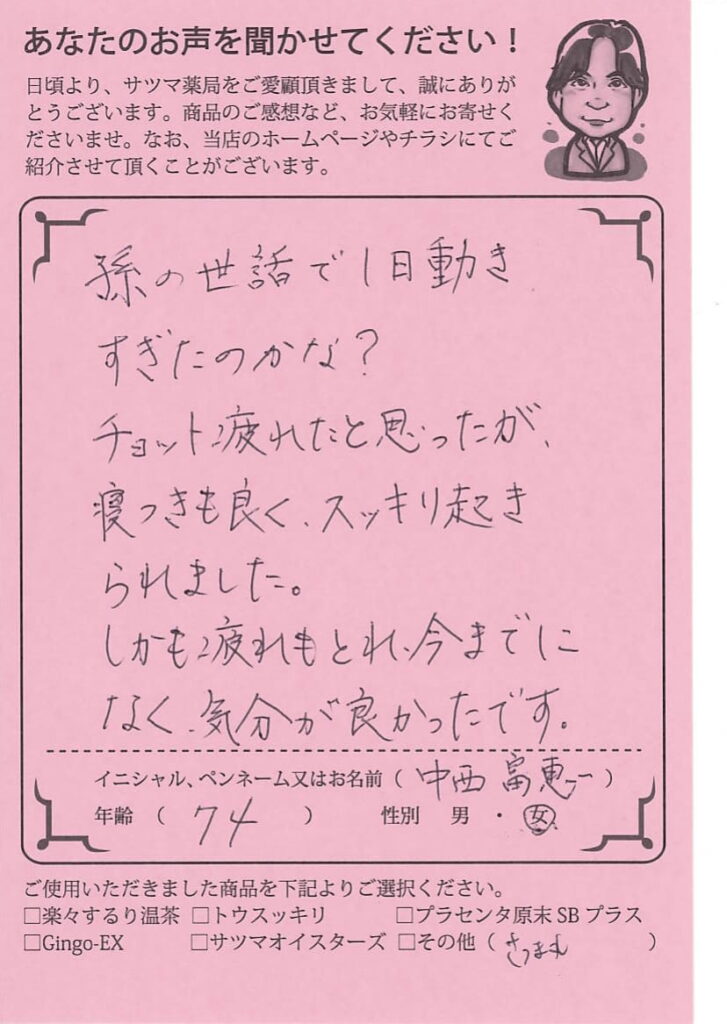 あなたのお声を聞かせてください！
日頃より、サツマ薬局をご愛顧頂きまして、誠にありが
とうございます。商品のご感想など、お気軽にお寄せく
ださいませ。なお、当店のホームページやチラシにてご
紹介させて頂くことがございます。
孫の世話で1日動き
すぎたのかな？
チョット疲れたと思ったが、
寝つきも良く、スッキリ起き
られました。
しかも疲れもとれ、今までに
なく、気分が良かったです。
イニシャル、ペンネーム又はお名前（ 中西 富恵 ）
年齢 （ 74 ） 性別 男 ・ 女
ご使用いただきました商品を下記よりご選択ください。
□楽々するり温茶 □トウスッキリ □プラセンタ原末 SB プラス
□Gingo-EX □サツマオイスターズ □その他（ ）